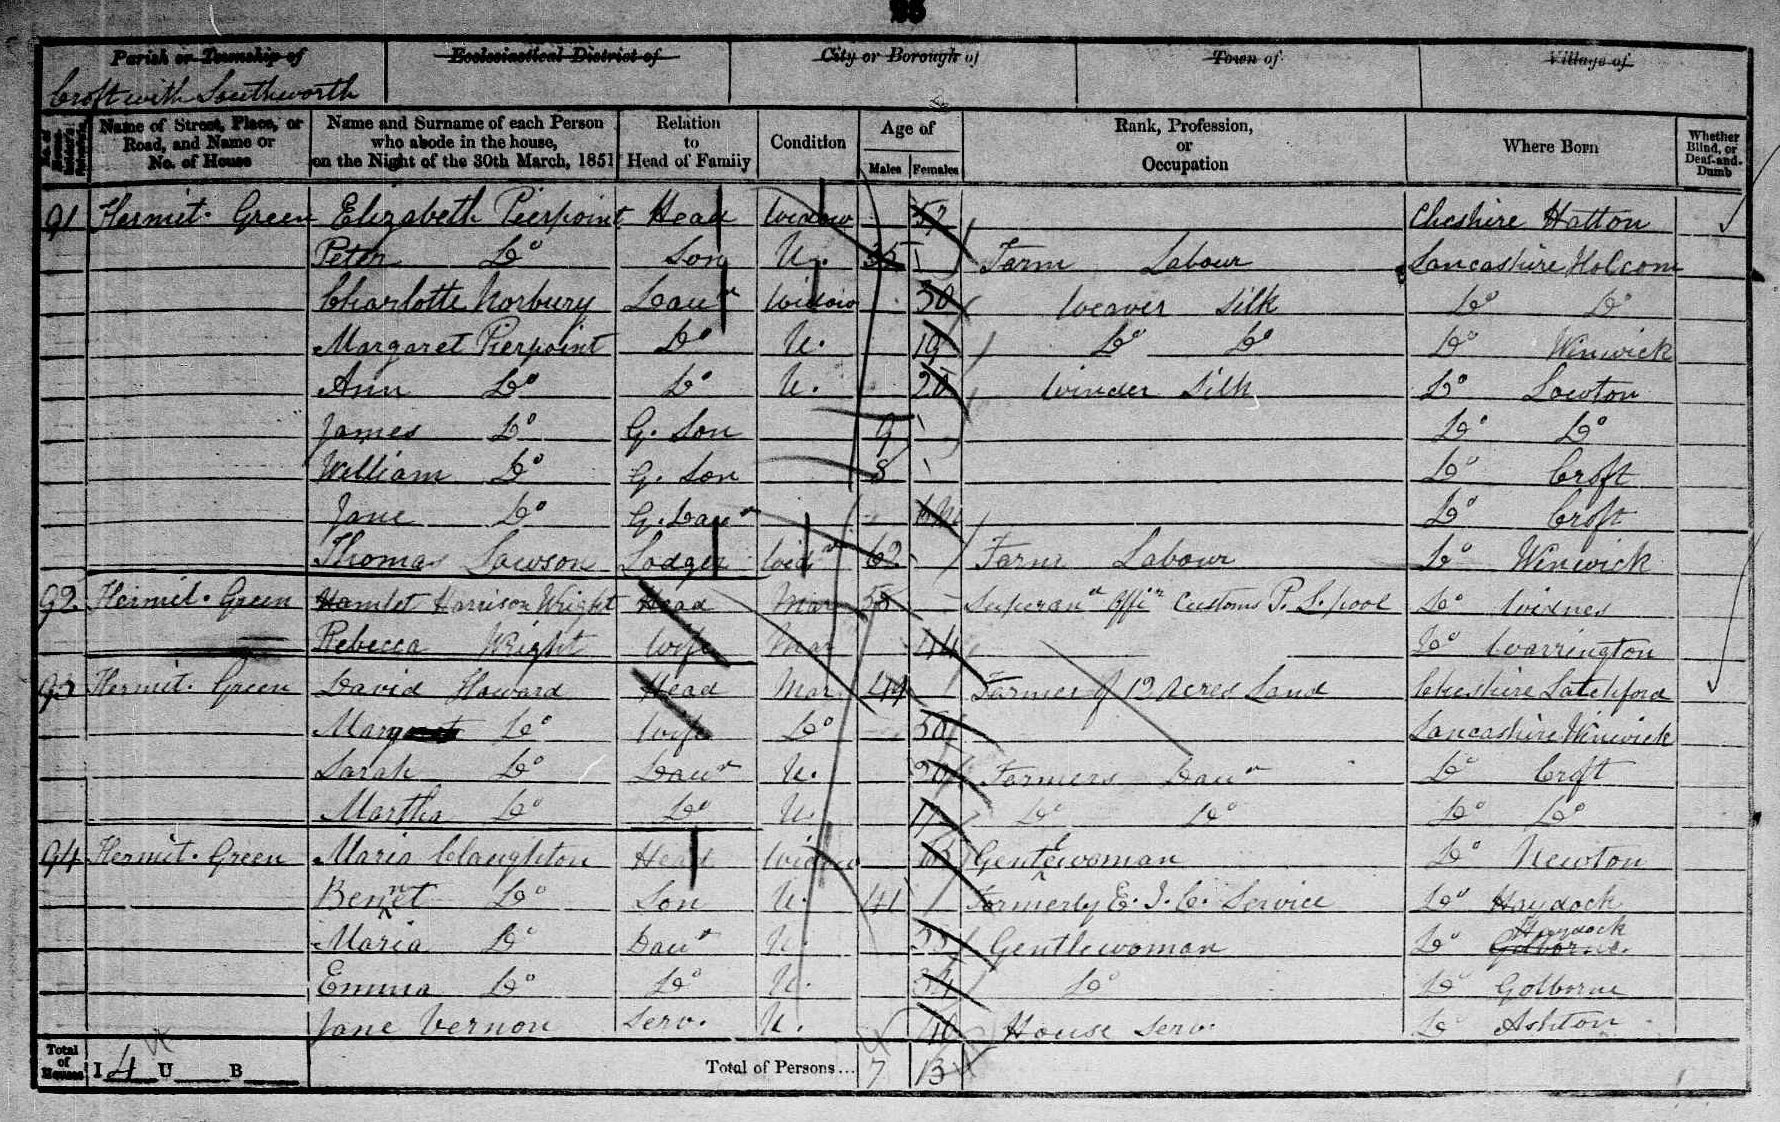 25
Parish or Township of Ecclesiastical District of City or Borough of Town of Village of
Croft with Southworth
Name of Street, Place, or Road, and Name or No. of House
Name and Surname of each Person who abode in the house, on the Night of the 30th March, 1851
Relation to Head of Family
Condition
Age of
Males Females
Rank, Profession, or Occupation
Where Born
Whether Blind, or Deaf-and-Dumb
91 Hermit. Green Elizabeth Pierpoint Head Widow 57 Cheshire Hatton
Peter Do Son U. 35 Farm Labour Lancashire Holcom
Charlotte Norbury Daur Widow 30 Weaver Silk Do Do
Margaret Pierpoint Do U. 19 Do Do Do Winwick
Ann Do Do U. 20 Winder Silk Do Lowton
James Do G. Son 9 Do Do
William Do G. Son 8 Do Croft
Jane Do G. Daur Do Croft
Thomas Lawson Lodger Widr 62 Farm Labour Do Winwick
92 Hermit. Green Hamlet Harrison Wright Head Mar 55 Superand Offir Customs P. L.pool Do Widnes
Rebecca Wright Wife Mar 44 Do Warrington
93 Hermit. Green David Howard Head Mar. 49 Farmer of 12 Acres Land Cheshire Latchford
Mary Do Wife Do 50 Lancashire Winwick
Sarah Do Daur U. 20 Farmers Daur Do Croft
Martha Do Do U. 17 Do Do Do Do
94 Hermit. Green Maria Claughton Head Widow Gentlewoman Do Newton
Bennet Do Son U. 41 Formerly E. I. C. Service Do Haydock
Maria Do Daur U. 35 Gentlewoman Do Haydock Golborne
Emma Do Do U. 34 Do Do Golborne
Jane Vernon Serv. U. House Serv. Do Ashton
Total of Houses I 4 U B Total of Persons... 7 13